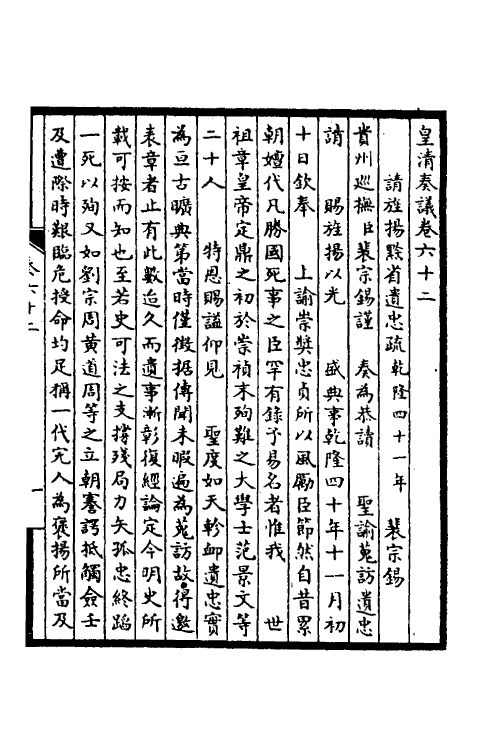 皇清奏議卷六十二
請旌揚黔省遺忠疏乾隆四十一年 裴宗錫
貴州巡撫臣裴宗錫謹 奏為恭讀 聖諭蒐訪遺忠
請 賜旌揚以光 盛典事乾隆四十年十一月初
十日欽奉 上諭崇奬忠貞所以風勵臣節然自昔累
朝嬗代凡勝國死事之臣罕有錄予易名者惟我 世
祖章皇帝定鼎之初於崇禎末殉難之大學士范景文等
二十人 特恩賜謚仰見 聖度如天軫卹遺忠實
為亘古曠典第當時僅徴据傳聞未暇遍為蒐訪故得邀
表章者止有此數迨久而遺事漸彰復經論定今明史所
載可按而知也至若史可法之支撐殘局力矢孤忠終蹈
一死以殉又如劉宗周黄道周等之立朝謇諤抵觸僉壬
及遭際時艱臨危授命均足稱一代完人為褒揚所當及
卷六十二
一